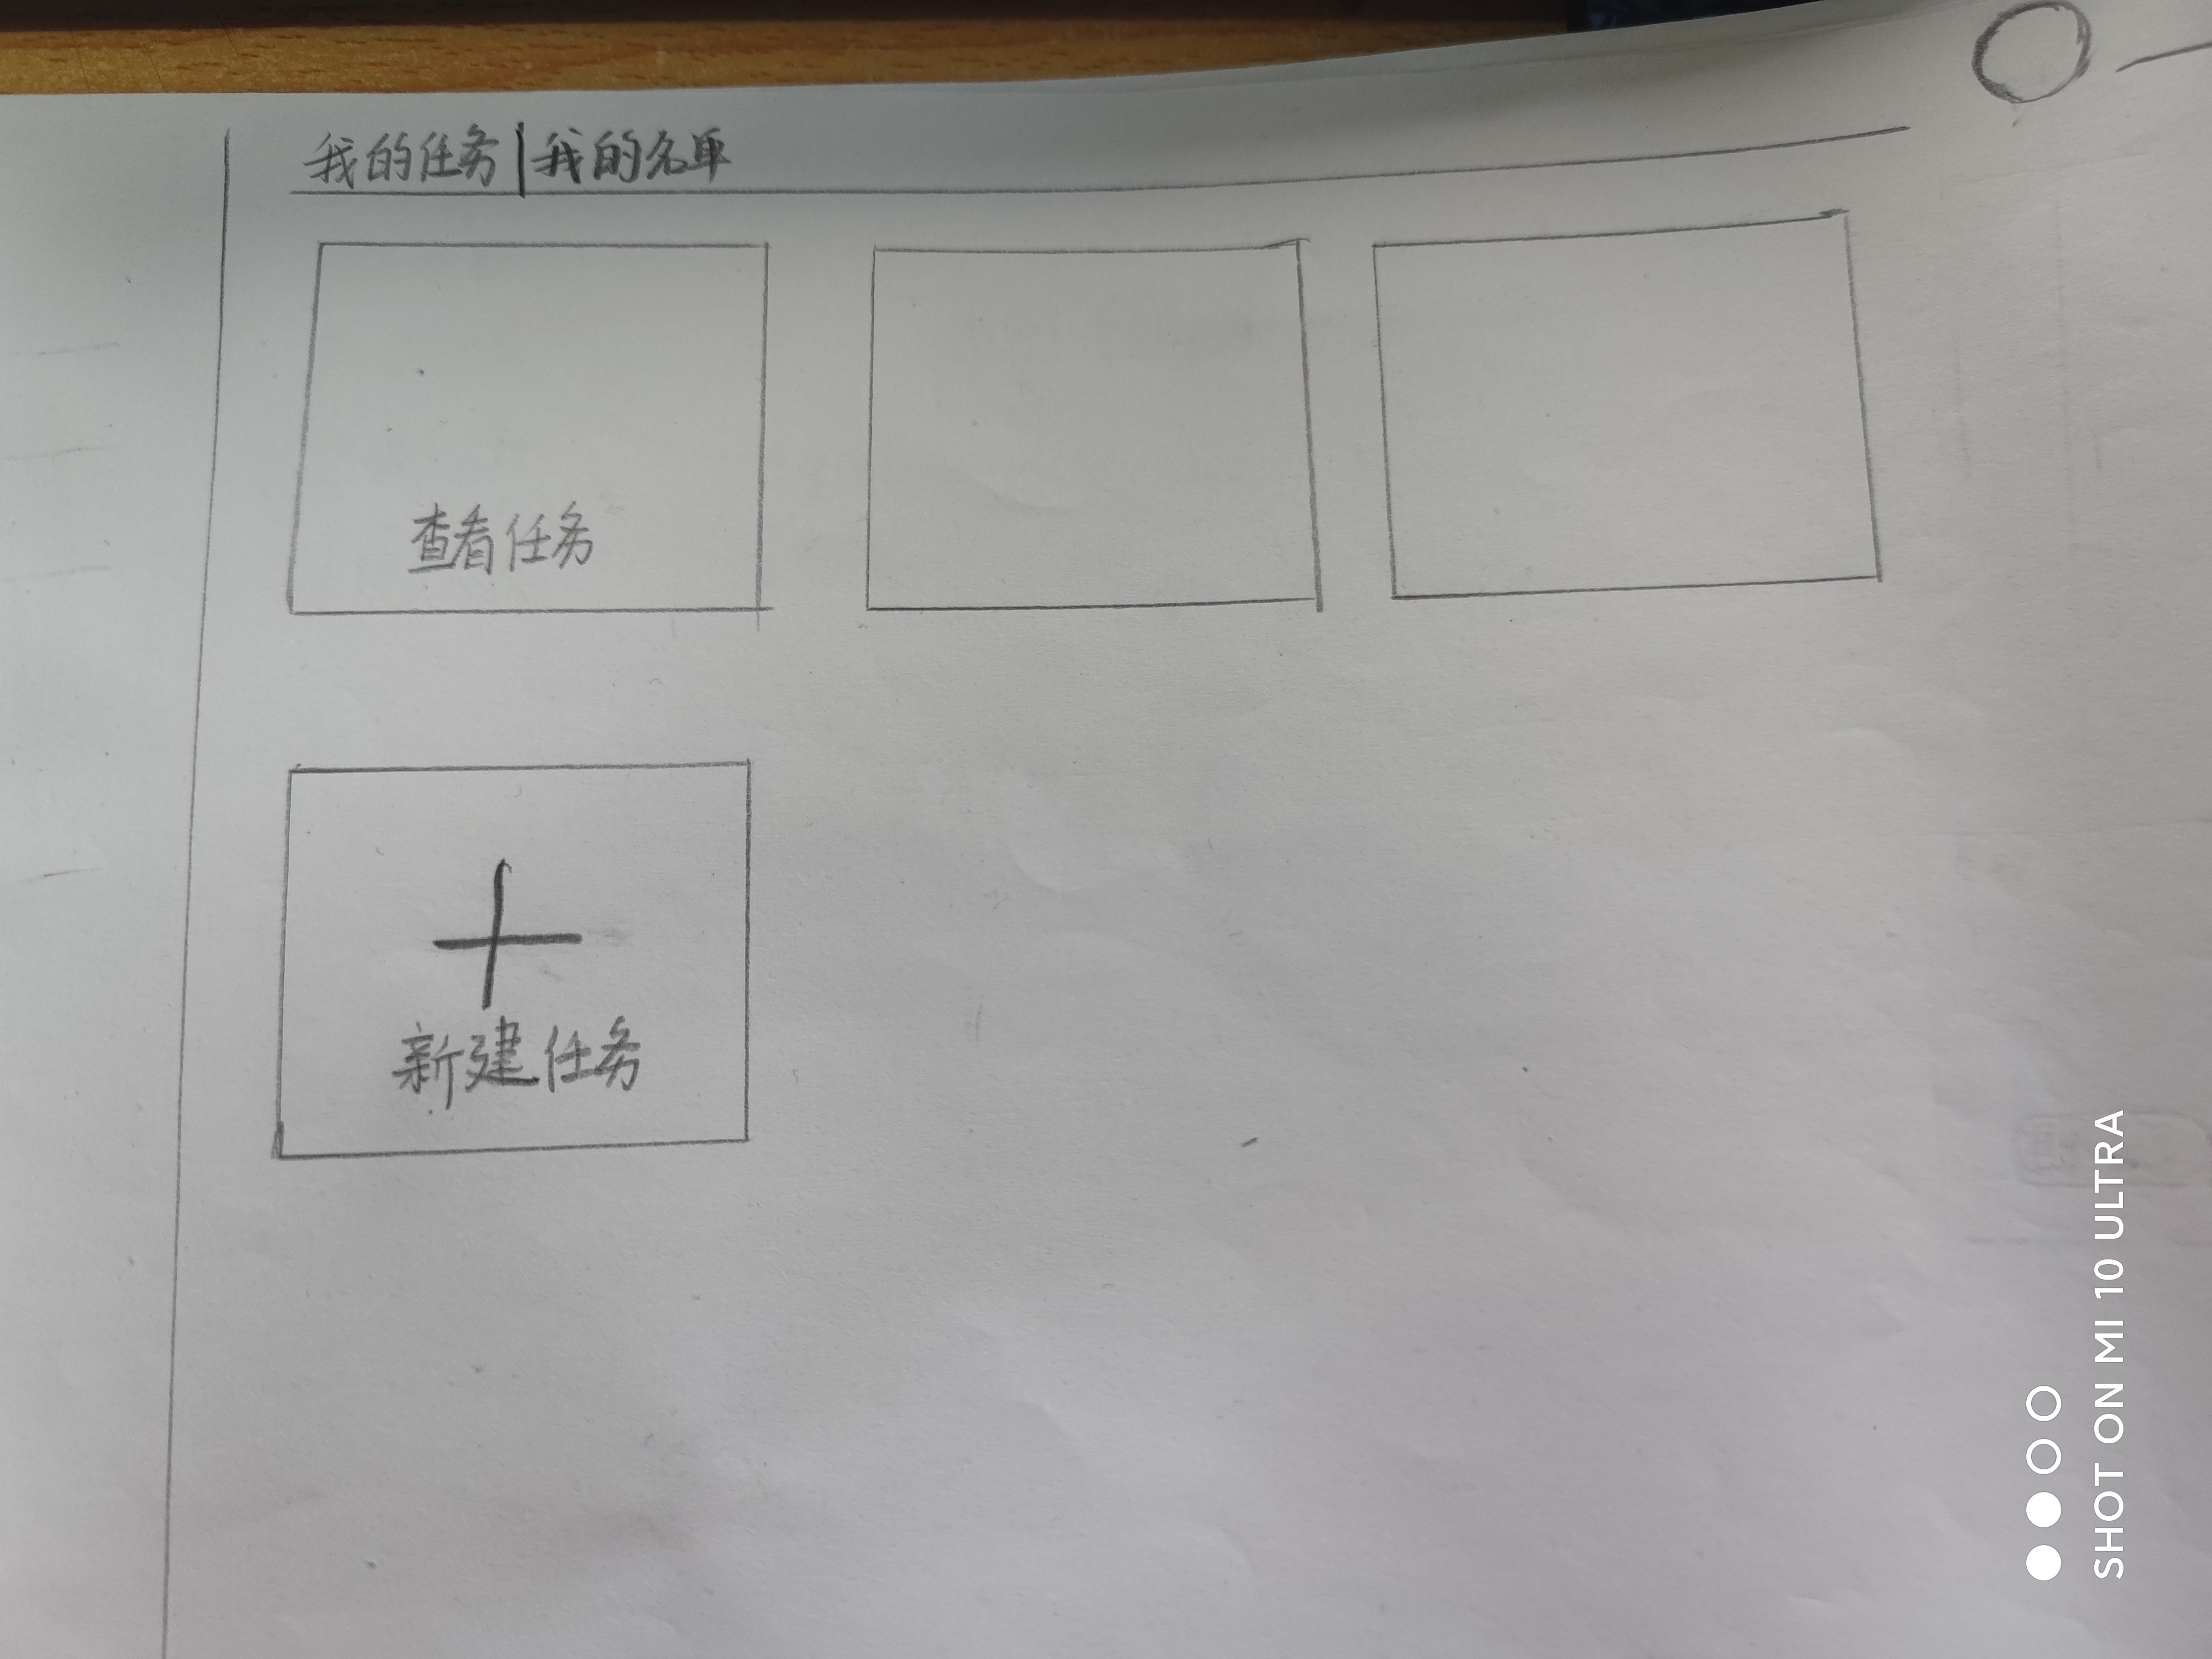 我的任务|我的名单
查看任务
新建任务
SHOT ON MI 10 ULTRA